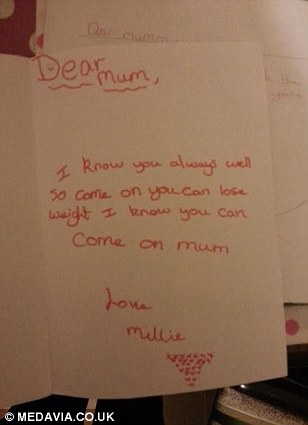 Dear Mumm
Dear
Mum,
I know you always well
so come on you can lose
weight I know you can
Come on mum
Love
Millie
© MEDAVIA.CO.UK